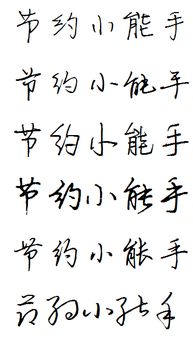 节约小能手
节约小能手
节约小能手
节约小能手
节约小能手
节约小能手